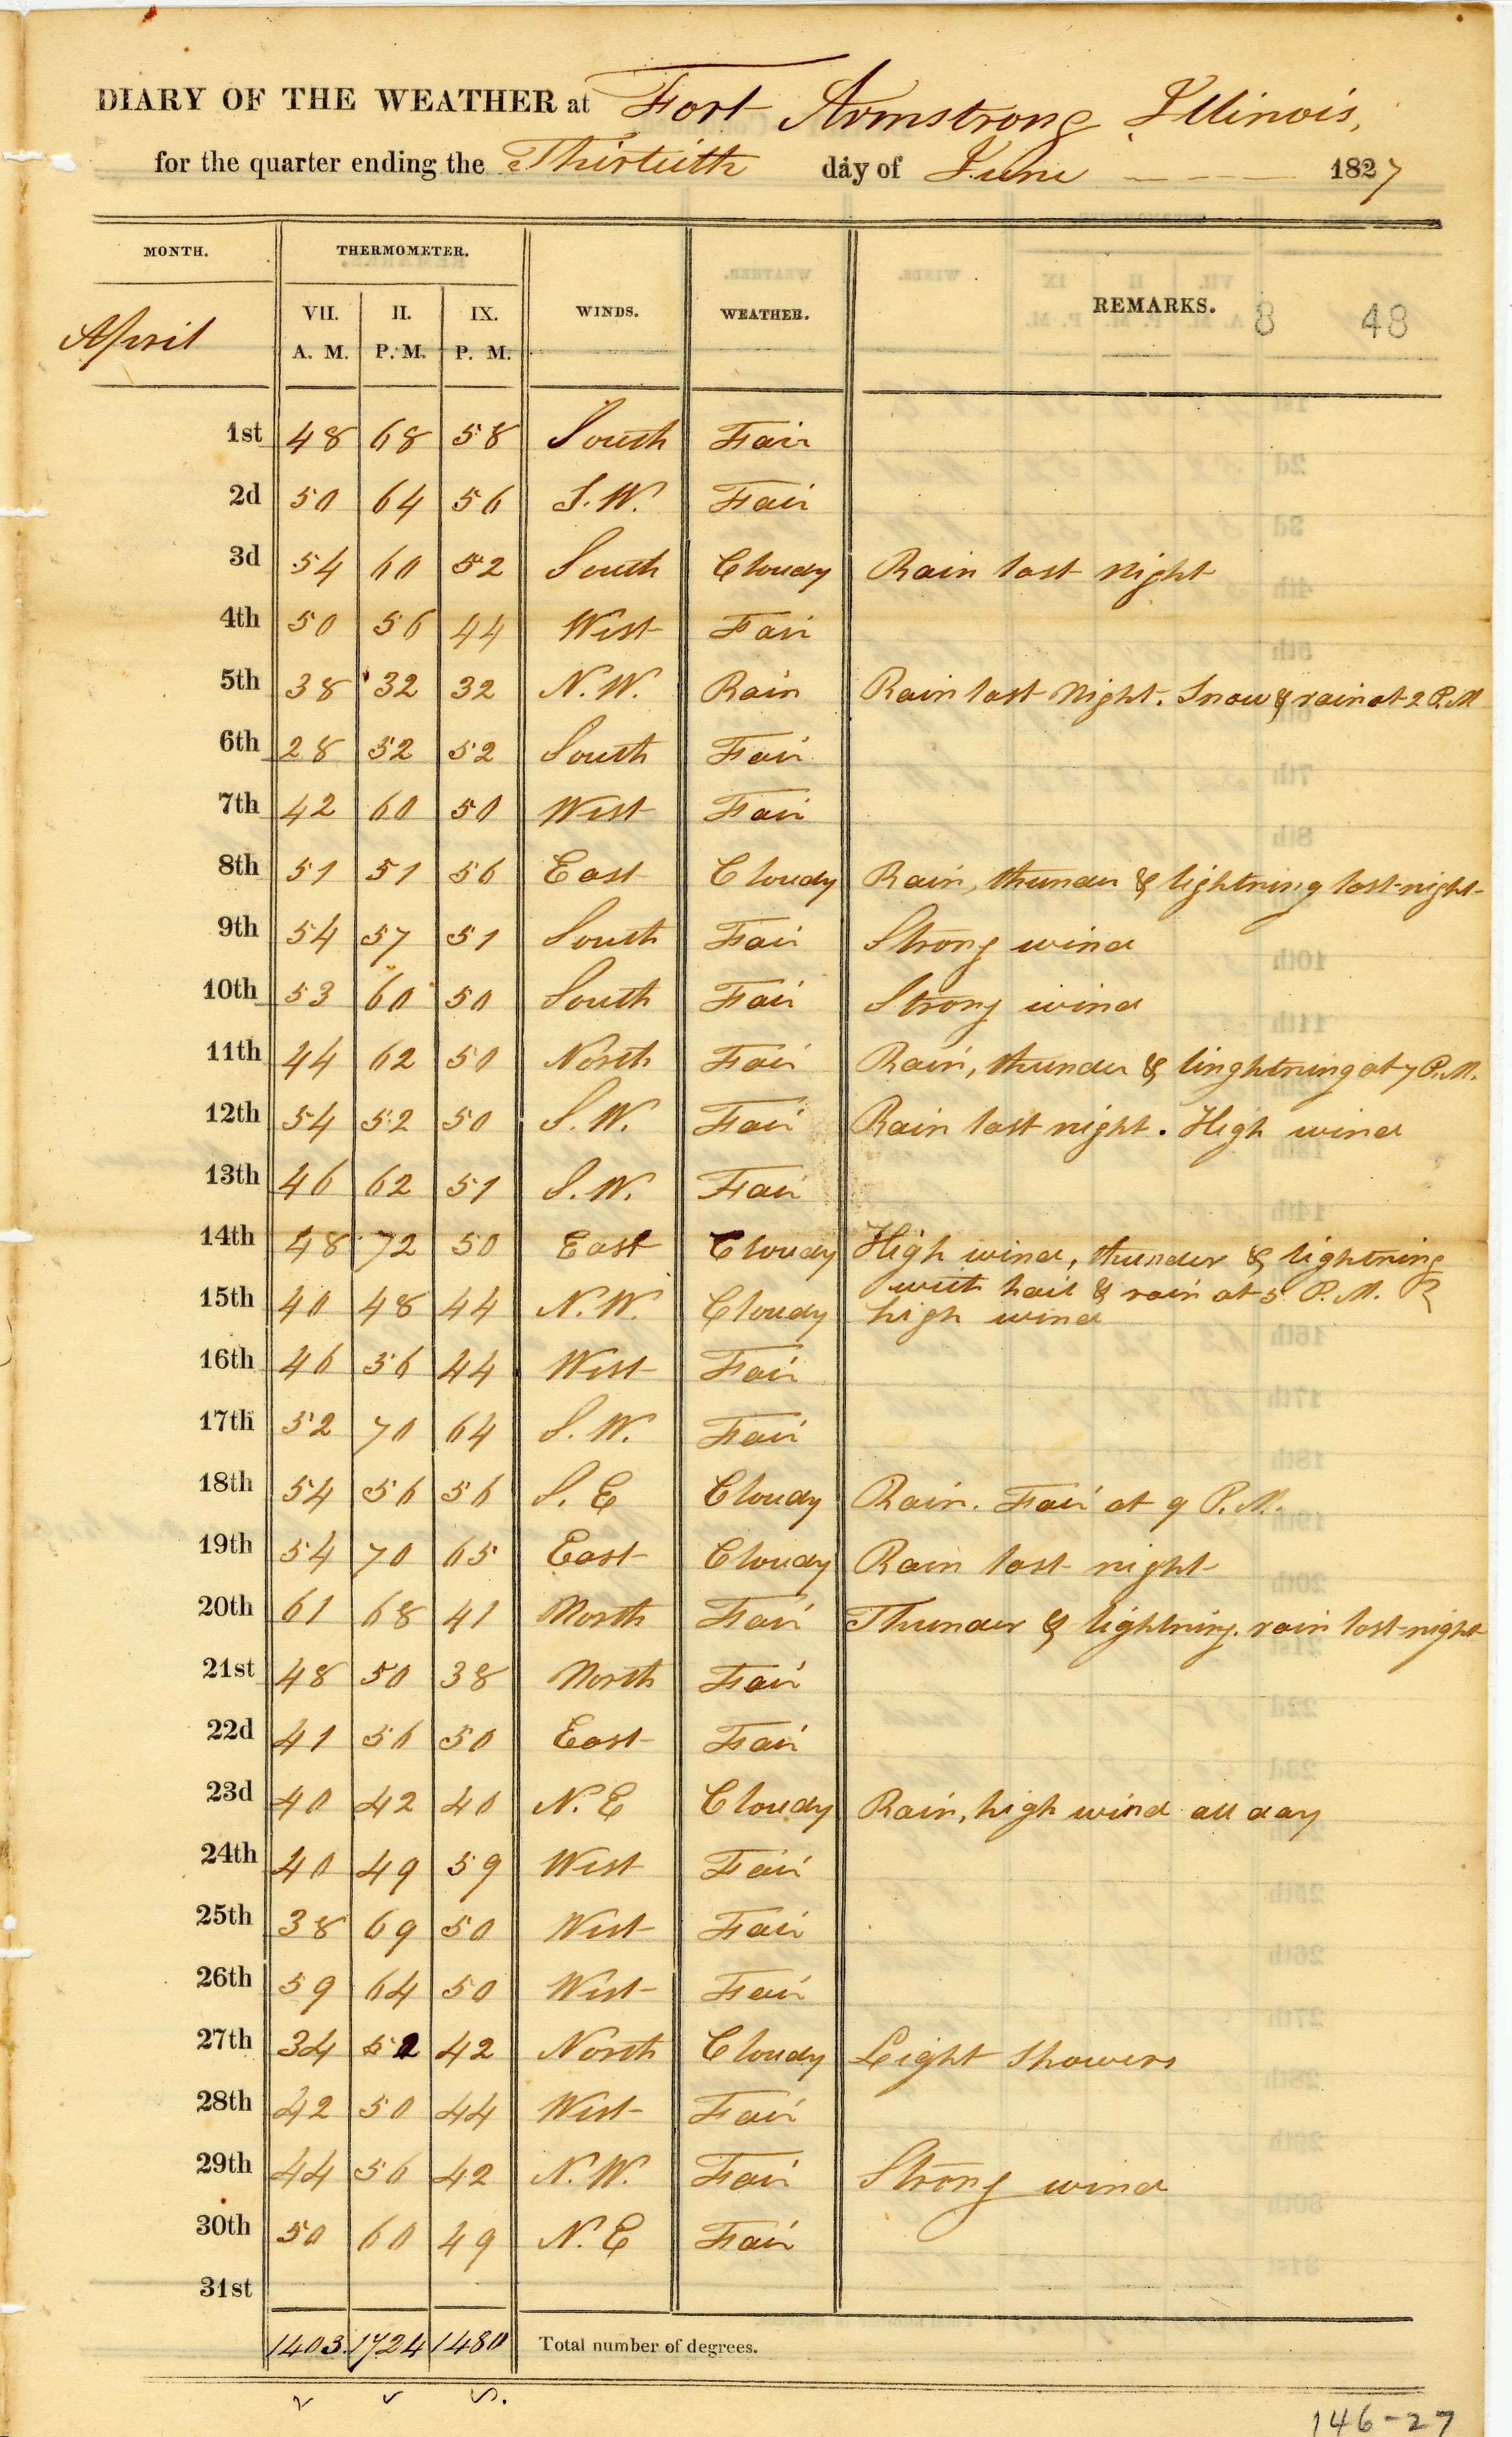 DIARY OF THE WEATHER at Fort Armstrong, Illinois,
for the quarter ending the Thirtieth day of June 1827
MONTH. THERMOMETER. WINDS. WEATHER. REMARKS. 8 48
April VII. A. M. II. P. M. IX. P. M.
1st 48 68 58 South Fair
2d 50 64 56 S. W. Fair
3d 54 60 52 South Cloudy Rain last night
4th 50 56 44 West Fair
5th 38 32 32 N. W. Rain Rain last Night. Snow & rain at 2 P. M
6th 28 52 52 South Fair
7th 42 60 50 West Fair
8th 51 51 56 East Cloudy Rain, thunder & lightning last night
9th 54 57 51 South Fair Strong wind
10th 53 60 50 South Fair Strong wind
11th 44 62 50 North Fair Rain, thunder & linghtning at 7 P. M.
12th 54 52 50 S. W. Fair Rain last night. High wind
13th 46 62 51 S. W. Fair
14th 48 72 50 East Cloudy High wind, thunder & lightning
with hail & rain at 5 P. M.
15th 40 48 44 N. W. Cloudy high wind
16th 46 56 44 West Fair
17th 52 70 64 S. W. Fair
18th 54 56 56 S. E Cloudy Rain. Fair at 9 P. M.
19th 54 70 65 East Cloudy Rain last night
20th 61 68 41 North Fair Thunder & lightning. rain last night
21st 48 50 38 North Fair
22d 41 56 50 East Fair
23d 40 42 40 N. E Cloudy Rain, high wind all day
24th 40 49 59 West Fair
25th 38 69 50 West Fair
26th 59 64 50 West Fair
27th 34 52 42 North Cloudy Light Showers
28th 42 50 44 West Fair
29th 44 56 42 N. W. Fair Strong wind
30th 50 60 49 N. E Fair
31st
1403 1724 1480 Total number of degrees.
146-27